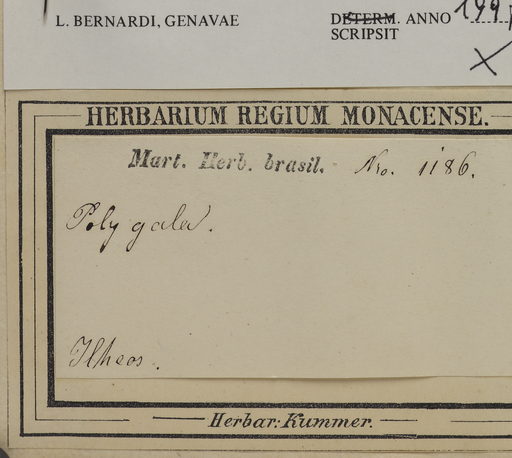 L. BERNARDI, GENAVAE DETERM. ANNO
SCRIPSIT
HERBARIUM REGIUM MONACENSE.
Mart. Herb. brasil. No. 1186.
Polygala.
Ilheos.
Herbar: Kummer.